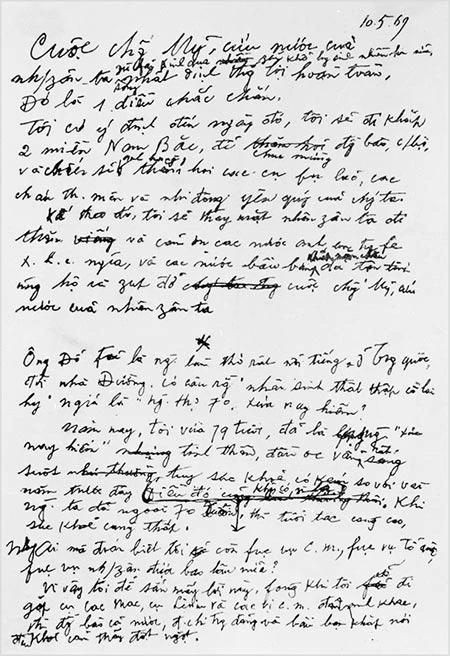 10.5.69
Cuộc chg Mỹ, cứu nước của
nh/zân ta dù phải kinh qua gian khổ, hy sinh nhiều hơn nữa, nhất định thg lợi hoàn toàn.
Đó là 1 điều chắc chắn.
Tôi có ý định đến ngày đó, tôi sẽ đi khắp
2 miền Nam Bắc, để chúc mừng đg bào, c/bộ,
và chiến sĩ thăm hỏi các cụ fụ lão, các
cháu th. niên và nhi đồng yêu quý của chg ta.
theo đó, tôi sẽ thay mặt nhân zân ta đi
thăm và cảm ơn các nước anh em tr. fe
x. h. c. nghĩa, và các nước bầu bạn đã tận tình
ủng hộ và zúp đỡ cuộc chg Mỹ, cứu
nước của nhân zân ta
Ông Đỗ Fủ là ng làm thơ rất nổi tiếng ở Trg quốc,
đời nhà Đường. Có câu rằng "nhân sinh thất thập cổ lai
hy" nghĩa là "Ng. thọ 70, xưa nay hiếm".
Năm nay, tôi vừa 79 tuổi, đã là "xưa
nay hiếm" tinh thần, đầu óc vẫn sáng
suốt tuy sức khoẻ có kém so với vài
năm trước đây. Khi
ng. ta đã ngoài 70 thì tuổi tác càng cao,
sức khoẻ càng thấp.
Nhưng ai mà đoán biết tôi còn fục vụ c.m., fục vụ Tổ quốc,
fục vụ nh/zân được bao lâu nữa?
Vì vậy tôi để sẵn mấy lời này, fòng khi tôi sẽ đi
gặp cụ Các Mác, cụ Lênin và các vị c.m. đàn anh khác,
thì đg bào cả nước, đ. chí trg đảng và bầu bạn khắp nơi
đều khỏi cảm thấy đột ngột.